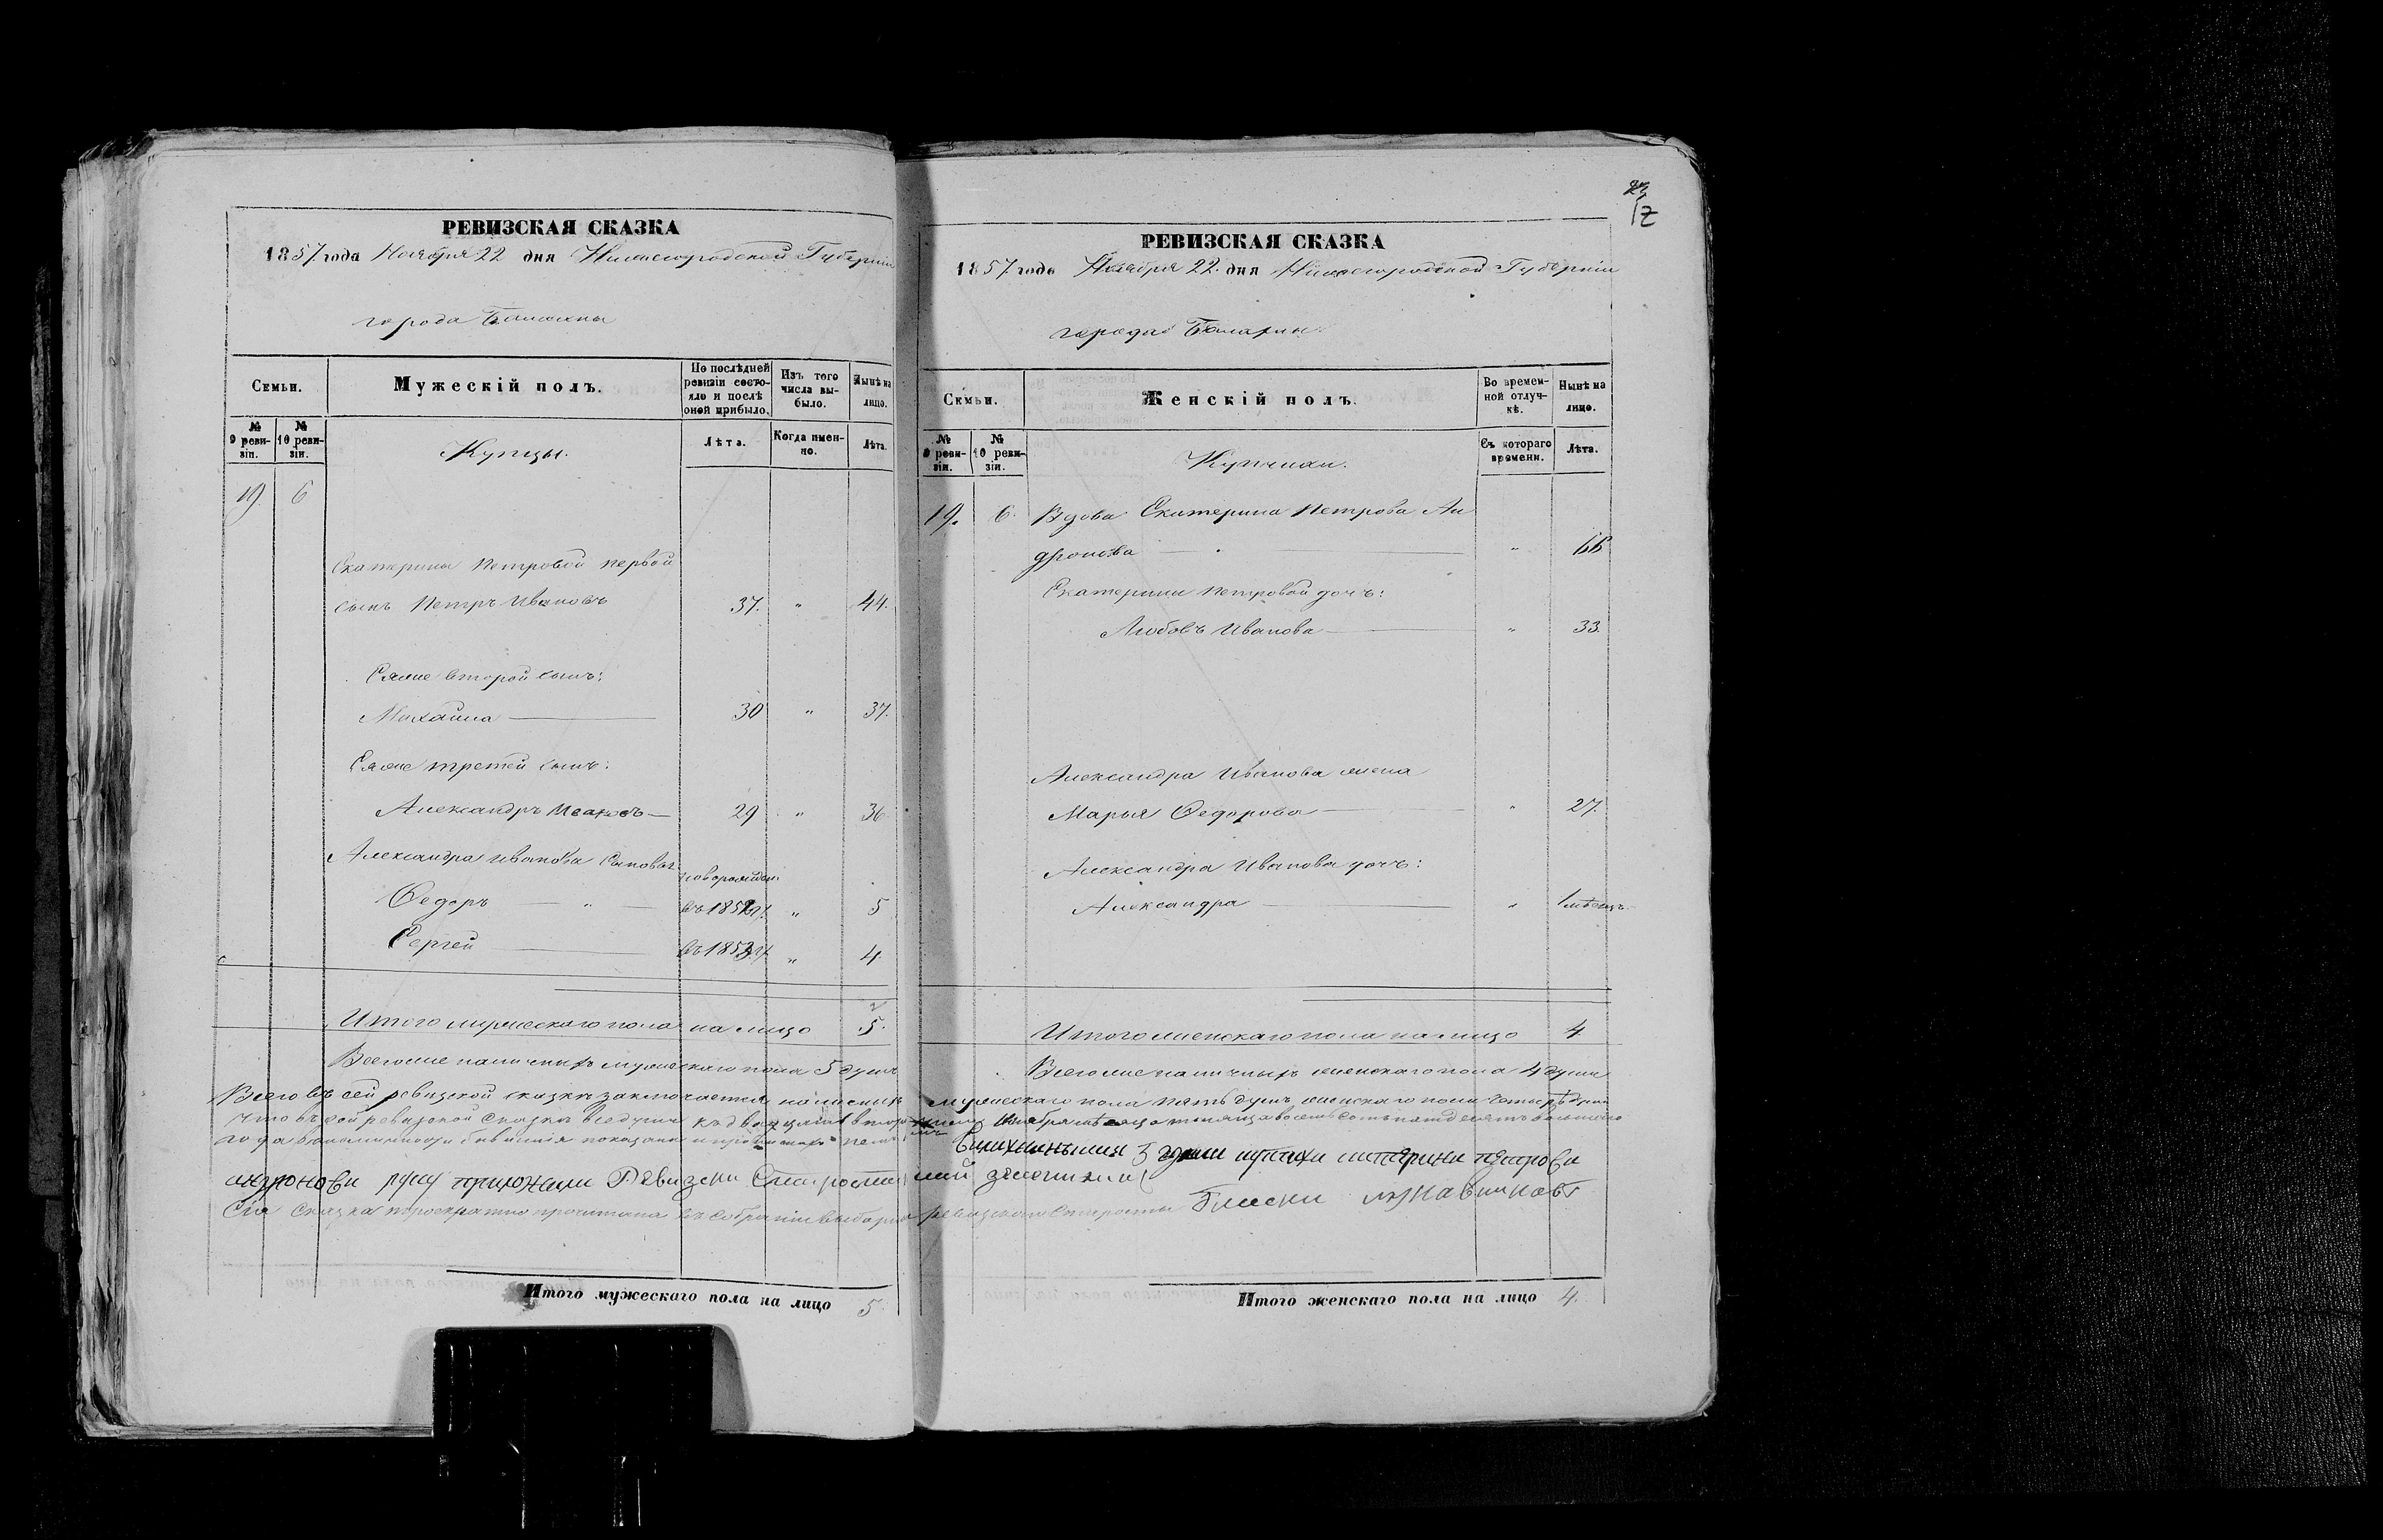 РЕВИЗСКАЯ СКАЗКА
1857 года Ноября 22 дня Нижегородской Губернии
города Балахны
Семьи.
Мужескій полъ.
По послѣдней ревизіи состояло и послѣ оной прибыло.
Изъ того числа выбыло.
Нынѣ на лицо.
№ 9 ревизіи.
№ 10 ревизіи.
Купцы.
Лѣта.
Когда именно.
Лѣта.
19. 6
Екатерины Петровой первой
сынъ Петръ Ивановъ 37. " 44.
Еяже второй сынъ:
Михайла 30 " 37.
Еяже третей сынъ:
Александръ Ивановъ 29 " 36
Александра Иванова сыновья
новорожден.
Федоръ " въ 1852 г. " 5
Сергей въ 1853 г. " 4.
Итого мужескаго пола на лицо 5.
Всего же наличныхъ мужескаго пола 5 душъ
Итого мужескаго пола на лицо 5.
23
12
РЕВИЗСКАЯ СКАЗКА
1857 года Ноября 22. дня Нижегородской Губерніи
города Балахны.
Семьи.
Женскій полъ.
Во временной отлучкѣ.
Нынѣ на лицо.
№ 9 ревизіи.
№ 10 ревизіи.
Купчихи.
Съ котораго времени.
Лѣта.
19. 6. Вдова Екатерина Петрова Ан
дронова " 66
Екатерины Петровой дочь:
Любовь Иванова " 33.
Александра Иванова жена
Марья Федорова " 27.
Александра Иванова дочь:
Александра " 1 мѣсяцъ
Итого женскаго пола на лицо 4
Всего же наличныхъ женскаго пола 4 души
Всего въ сей ревизской сказкѣ заключается наличныхъ мужескаго пола пять душъ женскаго пола четыре души
что въ сей ревизской сказкѣ все души къ двадцать второму ноября
года
Петрови
андронови руку приложили Ревизски Старости
Сія сказка троекратно прочитана въ собраніи выборна ревизскаго старосты
Итого женскаго пола на лицо 4.